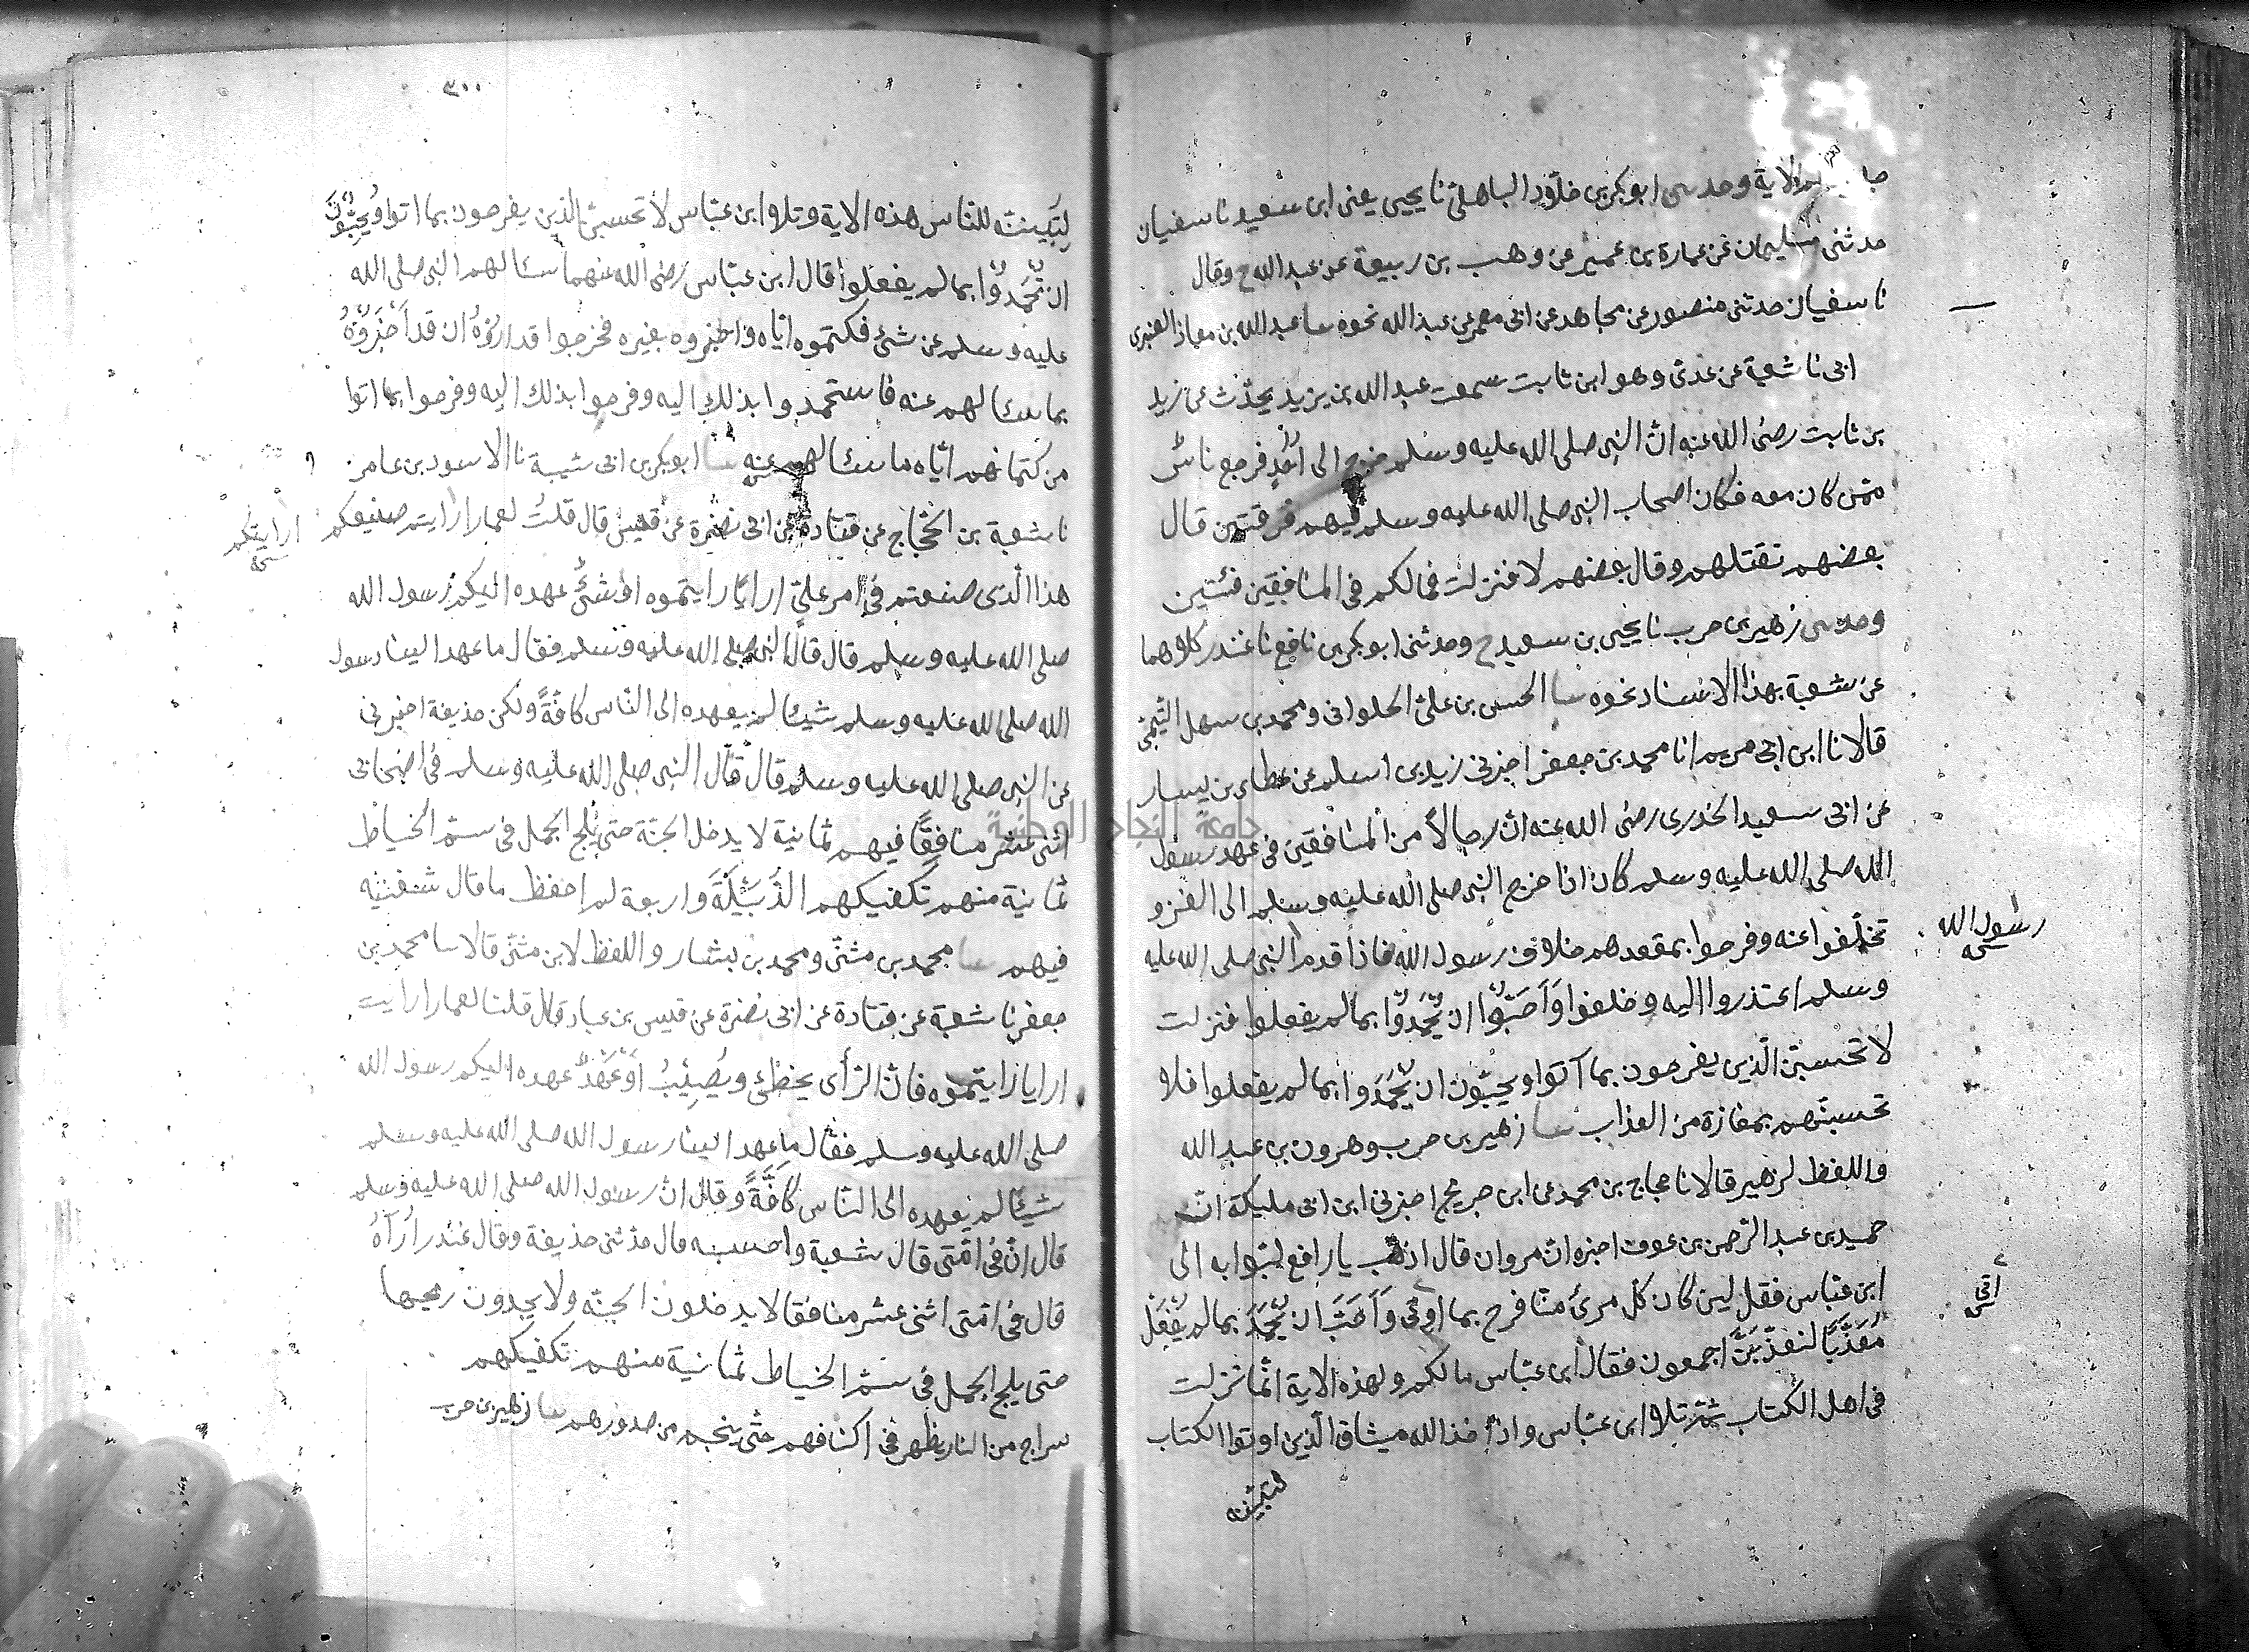 الاية وحدثنى ابو بكر بن خلاد الباهلى نا يحيى يعنى ابن سعيد نا سفيان
حدثنى سليمان عن عمارة بن عمير عن وهب بن ربيعة عن عبد الله ح وقال
نا سفيان حدثنى منصور عن مجاهد عن ابى معمر عن عبد الله نحوه ثنا عبد الله بن معاذ العنبرى
ابى نا شعبة عن عدى وهو ابن ثابت سمعت عبد الله بن يزيد يحدّث عن زيد
بن ثابت رضى الله عنه انّ النبى صلى الله عليه وسلم خرج الى اُحُدٍ فرجع ناسٌ
ممّن كان معه فكان اصحاب النبى صلى الله عليه وسلم فيهم فرقتين قال
بعضهم نقتلهم وقال بعضهم لا فنزلت فمالكم فى المنافقين فئتين
وحدثنى زهير بن حرب نا يحيى بن سعيد ح وحدثنى ابو بكر بن نافع نا غندر كلاهما
عن شعبة بهذا الاسناد نحوه ثنا الحسن بن على الحلوانى ومحمد بن سهل التميمى
قالا نا ابن ابى مريم انا محمد بن جعفر اخبرنى زيد بن اسلم عن عطاء بن يسار
عن ابى سعيد الخدرى رضى الله عنه انّ رجالاً من المنافقين فى عهد رسول
الله صلى الله عليه وسلم كان اذا خرج النبى صلى الله عليه وسلم الى الغزو
تخلّفوا عنه وفرحوا بمقعدهم خلاف رسول الله فاذا قدم النبى صلى الله عليه
رسول الله
وسلم اعتذروا اليه وحلفوا وَاَحَبُّوا ان يُحْمَدُوا بما لم يفعلوا فنزلت
لا تحسبنّ الّذين يفرحون بما آتوا ويحبّون ان يُحْمَدُوا بما لم يفعلوا فلا
تحسبنّهم بمفازة من العذاب ثنا زهير بن حرب وهرون بن عبد الله
واللفظ لزهير قالا نا حجاج بن محمد عن ابن جريج اخبرنى ابن ابى مليكة انّ
حميد بن عبد الرّحمن بن عوف اخبره انّ مروان قال اذهب يا رافع لبوابه الى
ابن عبّاس فقل لين كان كلّ مرئ منّا فرح بما اوتى وَاَحَبَّ ان يُحْمَدَ بما لم يَفْعَلْ
اتى
مُعَذَّبًا لنعذّبَنَّ اجمعون فقال ابن عبّاس مالكم ولهذه الاية انّما نزلت
فى اهل الكتاب ثمّ تلا ابن عبّاس واذ اخذ الله ميثاق الّذين اوتوا الكتاب
لتبيّننه
٣٠٠
لتبيننّه للنّاس هذه الاية وتلا ابن عبّاس لا تحسبنّ الّذين يفرحون بما اتوا ويُحِبُّونَ
ان يُحْمَدُوا بما لم يفعلوا قال ابن عبّاس رضى الله عنهما سئالهم النبى صلى الله
عليه وسلم عن شئ فكتموه ايّاه واخبروه بغيره فخرجوا قد ارَوْهُ ان قد اَخْبَرُوْهُ
بما سئالهم عنه فاستحمدوا بذلك اليه وفرحوا بذلك اليه وفرحوا بما اتوا
من كتمانهم ايّاه ما سئالهم عنه ثنا ابو بكر بن ابى شيبة نا الاسود بن عامر
نا شعبة بن الحجّاج عن قتادة عن ابى نضرة عن قيس قال قلتُ لعمار ارايتم صنيعكم
ارايتكم
هذا الّذى صنعتم فى امر علىّ ارايًا رايتموه او شئٌ عهده اليكم رسول الله
صلى الله عليه وسلم قال قال النبى صلى الله عليه وسلم فقال ما عهد الينا رسول
الله صلى الله عليه وسلم شيئا لم يعهده الى النّاس كافّةً ولكن حذيفة اخبرنى
عن النبى صلى الله عليه وسلم قال قال النبى صلى الله عليه وسلم فى اصحابى
اثنى عشر منافِقًا فيهم ثمانية لا يدخل الجنّة حتى يلج الجمل فى سمّ الخياط
ثمانية منهم تكفيكهم الدُّبَيْلَةُ واربعة لم احفظ ما قال شعبة
فيهم ثنا محمد بن مثنّى ومحمد بن بشار واللفظ لابن مثنّى قالا ثنا محمد بن
جعفر نا شعبة عن قتادة عن ابى نضرة عن قيس بن عباد قال قلنا لعمار ارايت
ارايا رايتموه فانّ الرّأى يخطئ ويُصِيْبُ اَوْعَهْدٌ عهده اليكم رسول الله
صلى الله عليه وسلم فقال ما عهد الينا رسول الله صلى الله عليه وسلم
شيئًا لم يعهده الى النّاس كافَّةً وقال انّ رسول الله صلى الله عليه وسلم
قال انّ فى امّتى قال شعبة واحسبه قال حدّثنى حذيفة وقال غندر اُرَاهُ
قال فى امّتى اثنى عشر منافقا لا يدخلون الجنّة ولا يجدون ريحها
حتى يلج الجمل فى سمّ الخياط ثمانية منهم تكفيكهم
سراج من النار يظهر فى اكتافهم حتّى ينجم من صدورهم ثنا زهير بن حرب
جامعة النجاح الوطنية